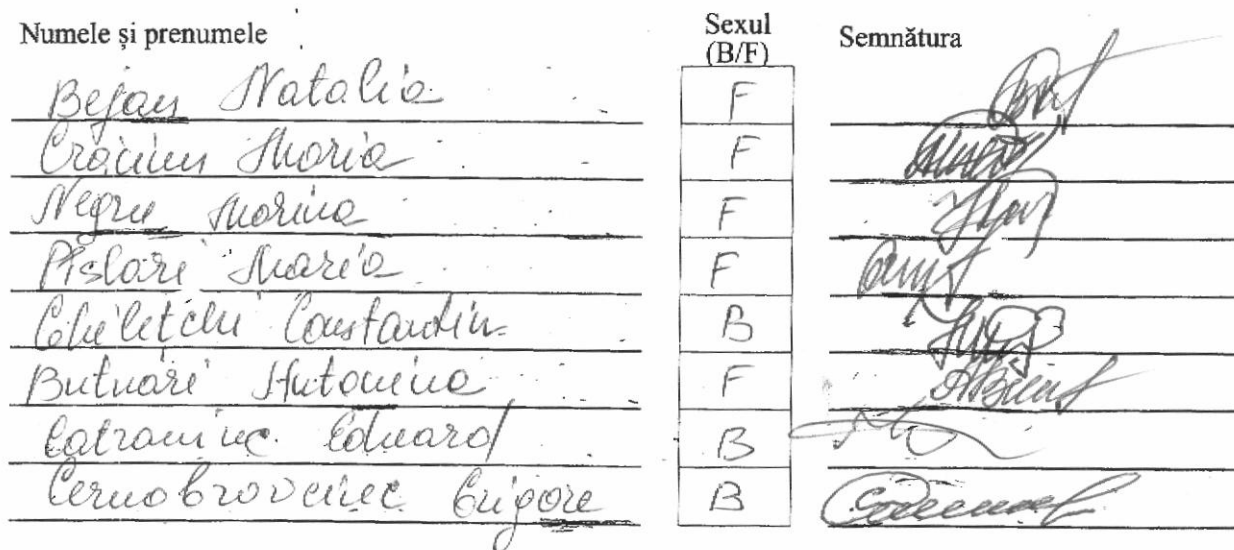 Numele și prenumele Sexul (B/F) Semnătura
Bejan Natalia F
Crăciun Maria F
Negru Marina F
Pîslari Maria F
Chelețchi Constandin B
Butnari Antonina F
Catraniuc Eduard B
Cernobrovciuc Grigore B